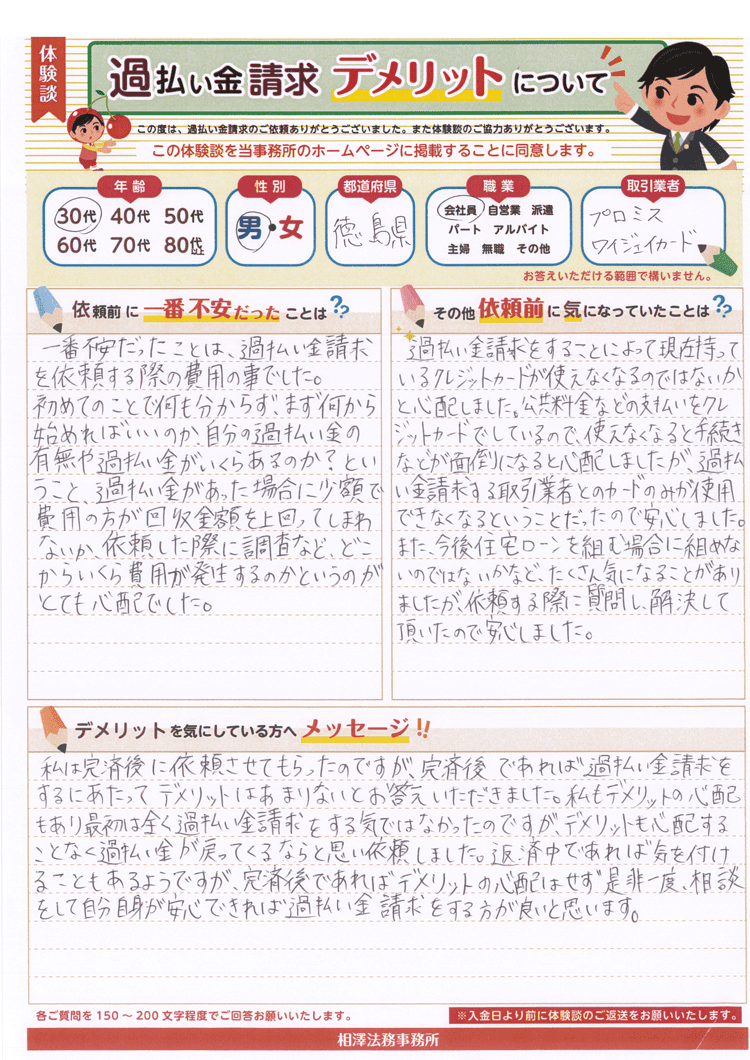 体験談
過払い金請求 デメリットについて
この度は、過払い金請求のご依頼ありがとうございました。また体験談のご協力ありがとうございます。
この体験談を当事務所のホームページに掲載することに同意します。
年齢
30代 40代 50代
60代 70代 80代以上
性別
男・女
都道府県
徳島県
職業
会社員 自営業 派遣
パート アルバイト
主婦 無職 その他
取引業者
プロミス
ワイジェイカード
お答えいただける範囲で構いません。
依頼前に一番不安だったことは??
一番不安だったことは、過払い金請求
を依頼する際の費用の事でした。
初めてのことで何も分からず、まず何から
始めればいいのか、自分の過払い金の
有無や過払い金がいくらあるのか?とい
うこと、過払い金があった場合に少額で
費用の方が回収金額を上回ってしまわ
ないか、依頼した際に調査など、どこ
からいくら費用が発生するのかというのが
とても心配でした。
その他依頼前に気になっていたことは??
過払い金請求をすることによって現在持って
いるクレジットカードが使えなくなるのではないか
と心配しました。公共料金などの支払いをクレ
ジットカードでしているので、使えなくなると手続き
などが面倒になると心配しましたが、過払
い金請求する取引業者とのカードのみが使用
できなくなるということだったので安心しました。
また、今後住宅ローンを組む場合に組めな
いのではないかなど、たくさん気になることがあり
ましたが、依頼する際に質問し、解決して
頂いたので安心しました。
デメリットを気にしている方へメッセージ!!
私は完済後に依頼させてもらったのですが、完済後であれば過払い金請求を
するにあたってデメリットはあまりないとお答えいただきました。私もデメリットの心配
もあり最初は全く過払い金請求をする気ではなかったのですが、デメリットも心配する
ことなく過払い金が戻ってくるならと思い依頼しました。返済中であれば気を付け
ることもあるようですが、完済後であればデメリットの心配はせず是非一度、相談
をして自分自身が安心できれば過払い金請求をする方が良いと思います。
各ご質問を150~200文字程度でご回答お願いいたします。
※入金日より前に体験談のご返送をお願いいたします。
相澤法務事務所